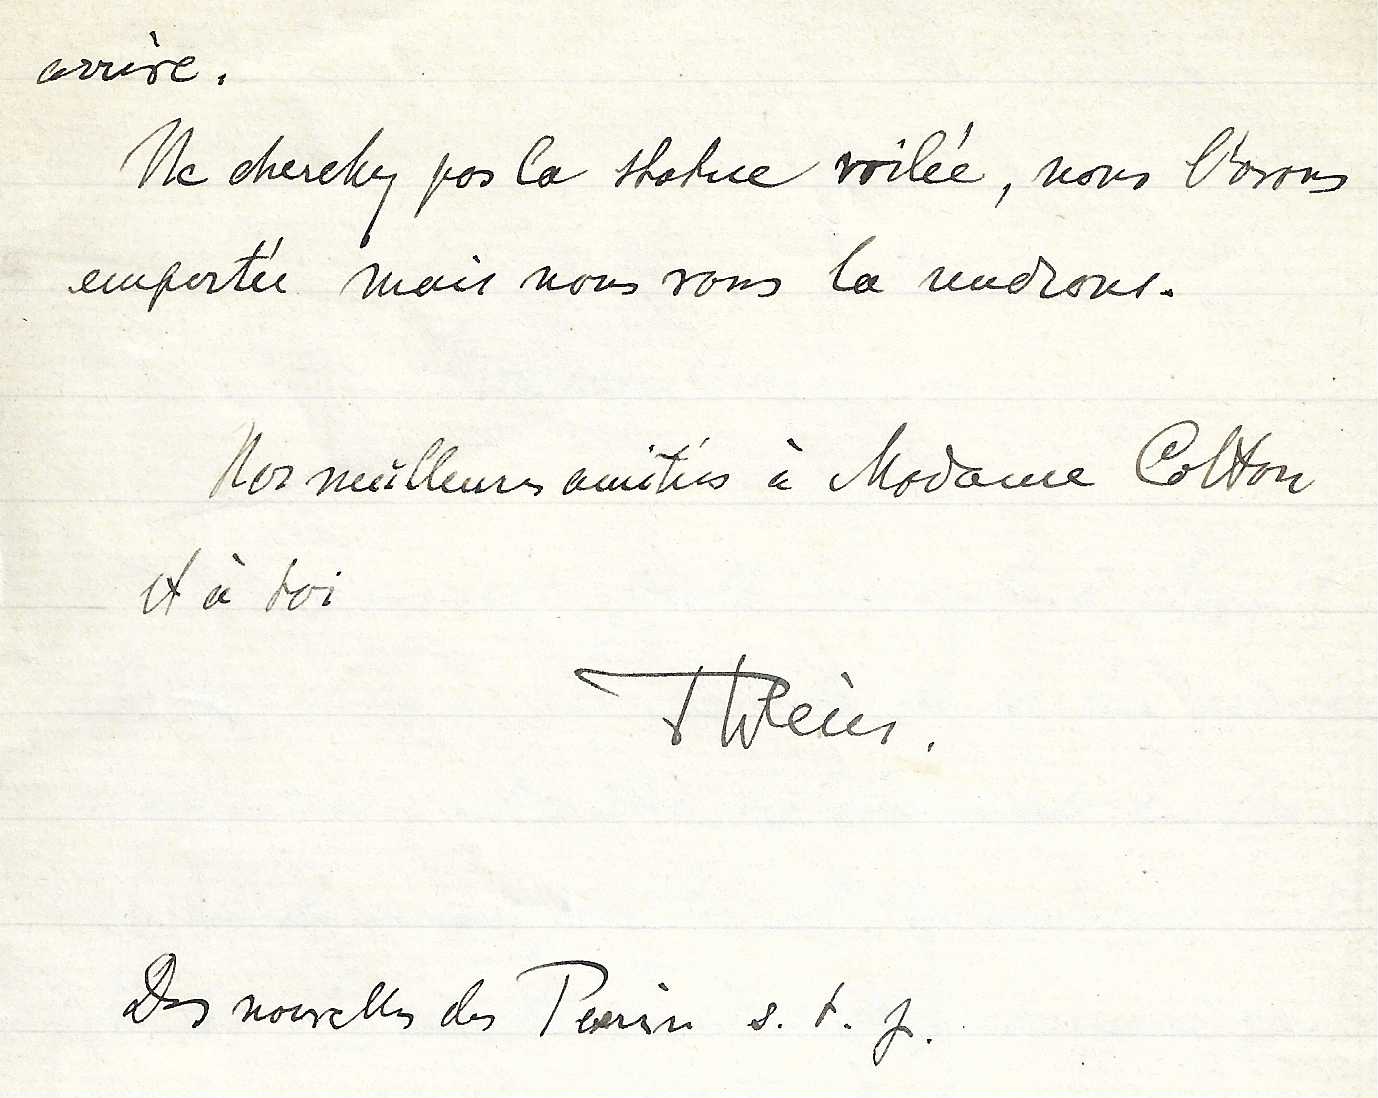 arrière.
Ne cherchez pas la statue voilée, nous l'avons
emportée mais nous vous la rendrons.
Nos meilleures amitiés à Madame Cotton
et à toi
PWeiss.
Des nouvelles des Perrin s. t. p.